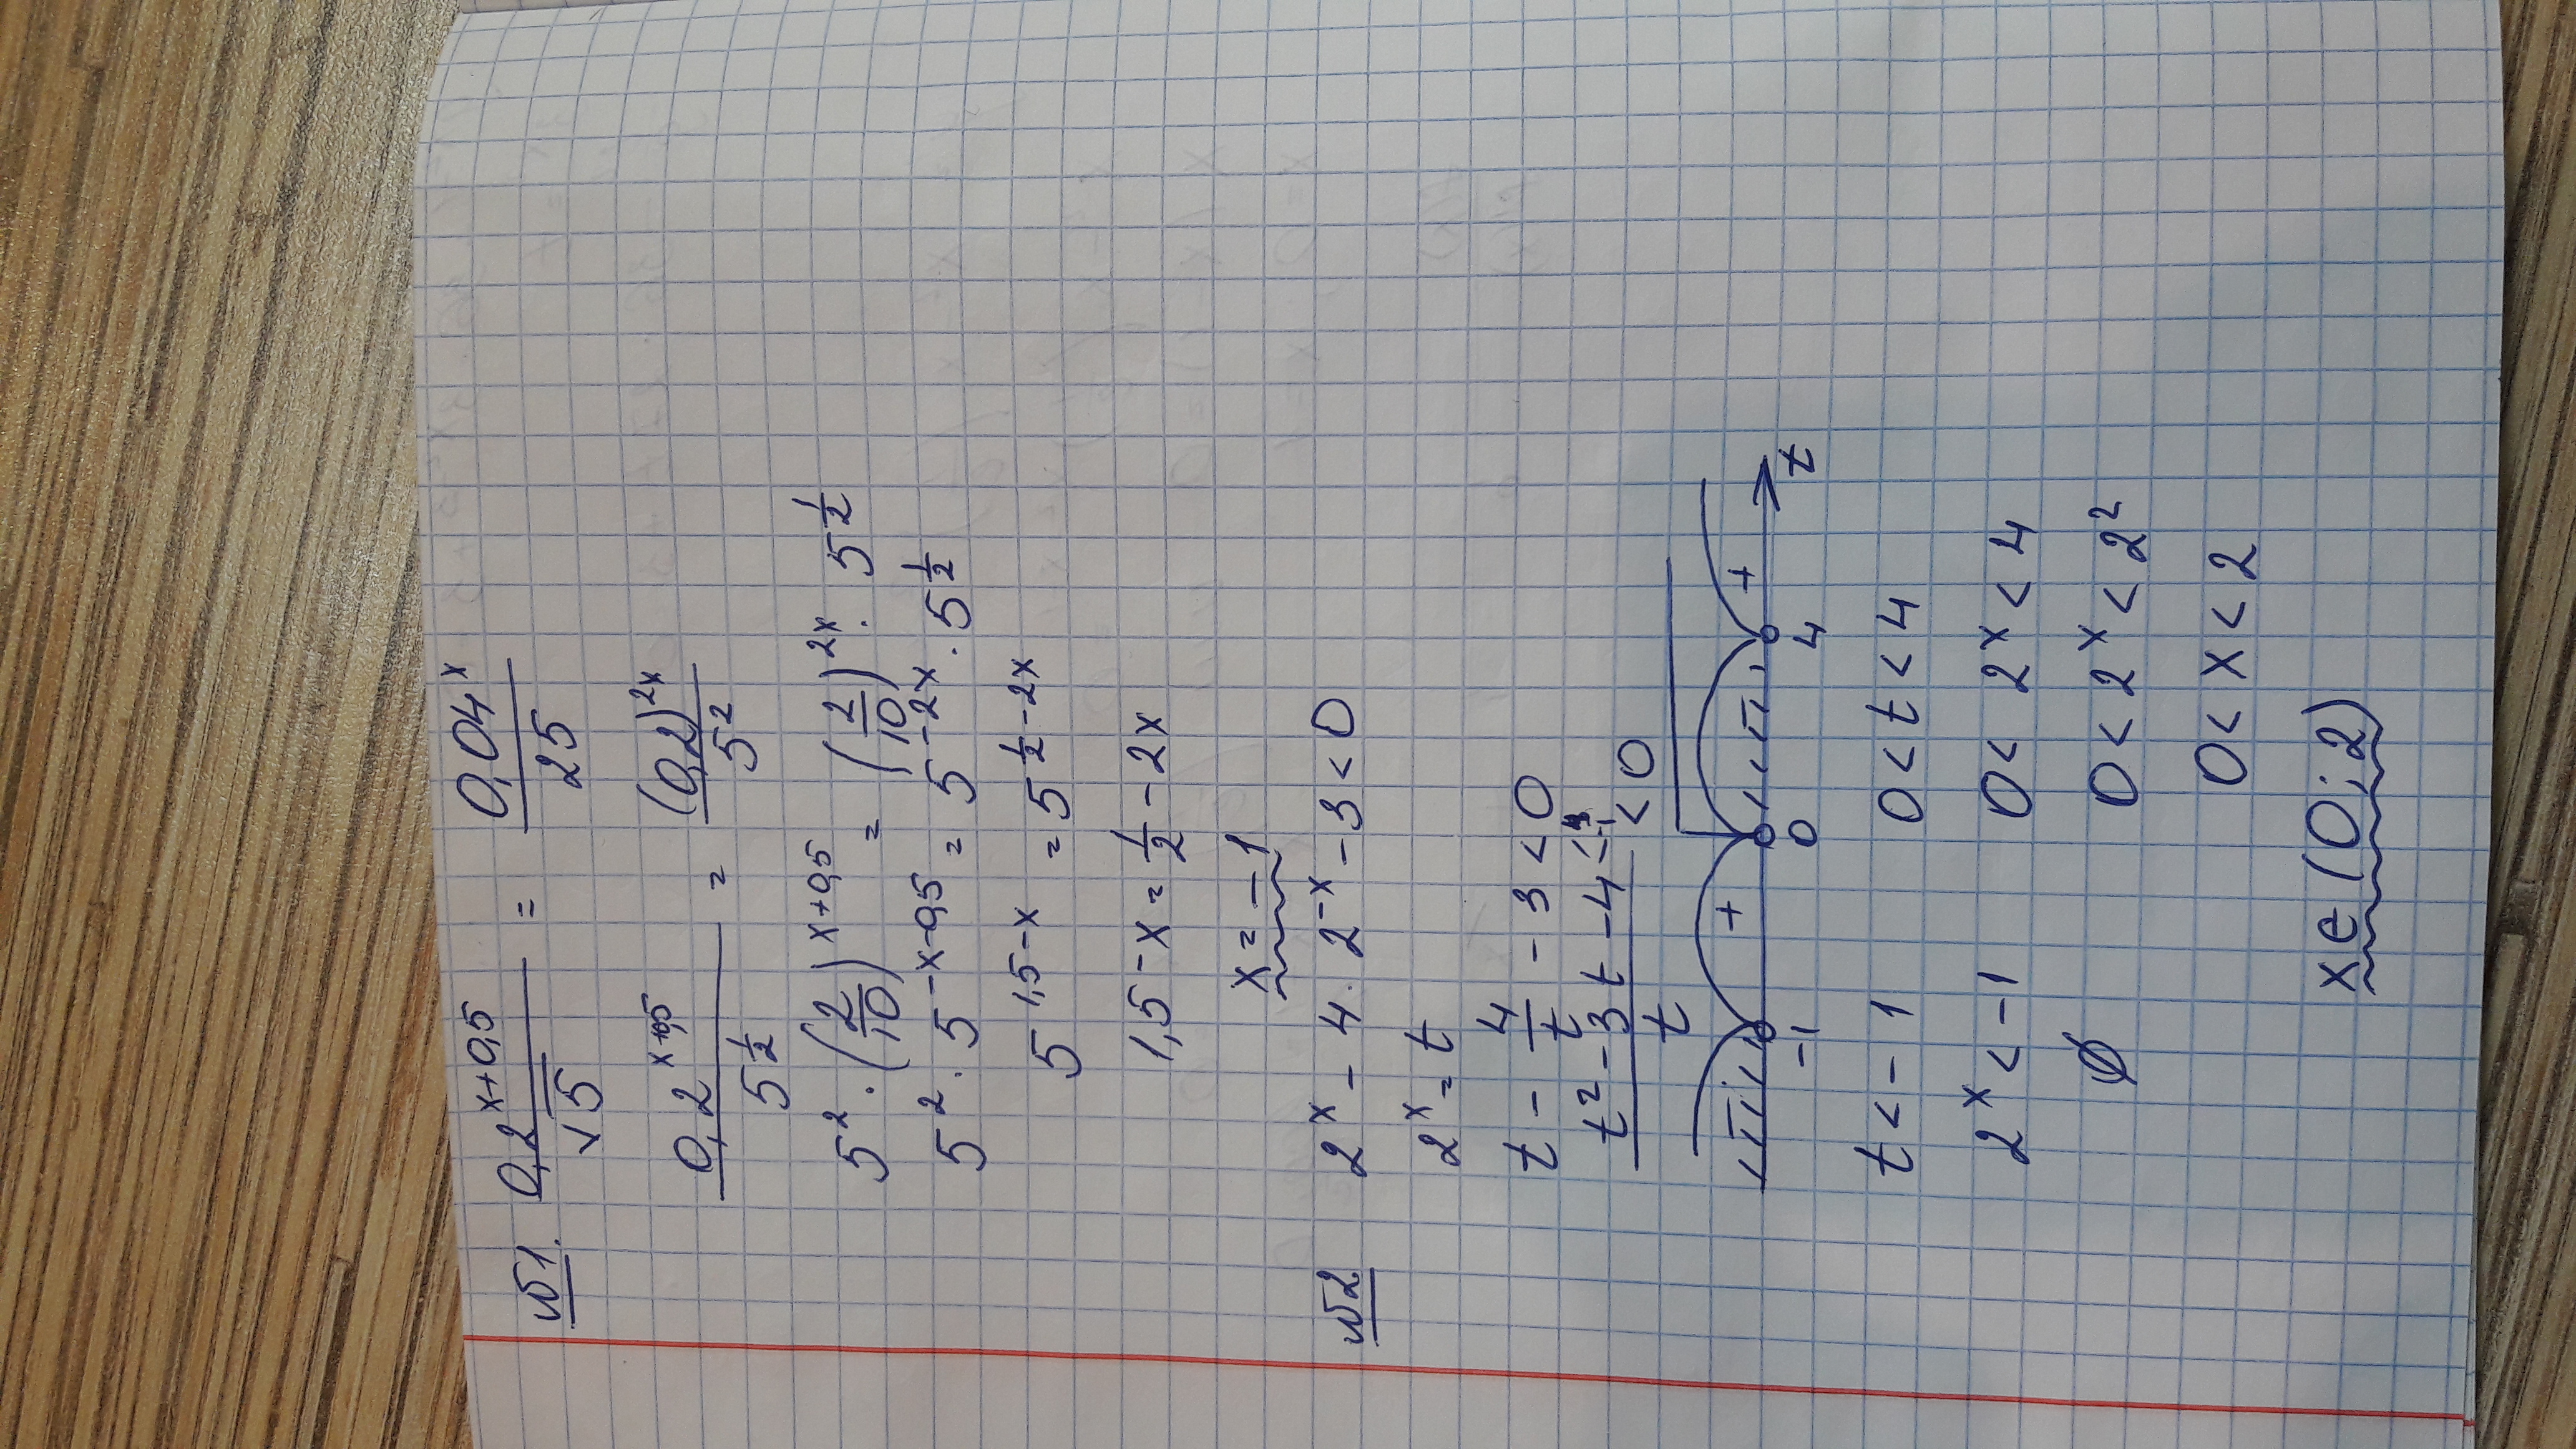 №1. 0,2^(x+0,5)/√5 = 0,04^x/25
0,2^(x+0,5)/5^(1/2) = (0,2)^(2x)/5^2
5^2 · (2/10)^(x+0,5) = (2/10)^(2x) · 5^(1/2)
5^2 · 5^(-x-0,5) = 5^(-2x) · 5^(1/2)
5^(1,5-x) = 5^(1/2-2x)
1,5-x = 1/2 - 2x
x = -1
№2 2^x - 4 · 2^(-x) - 3 < 0
2^x = t
t - 4/t - 3 < 0
(t^2 - 3t - 4)/t < 0
+ +
-1 0 4 t
t < -1 0 < t < 4
2^x < -1 0 < 2^x < 4
∅ 0 < 2^x < 2^2
0 < x < 2
x ∈ (0; 2)